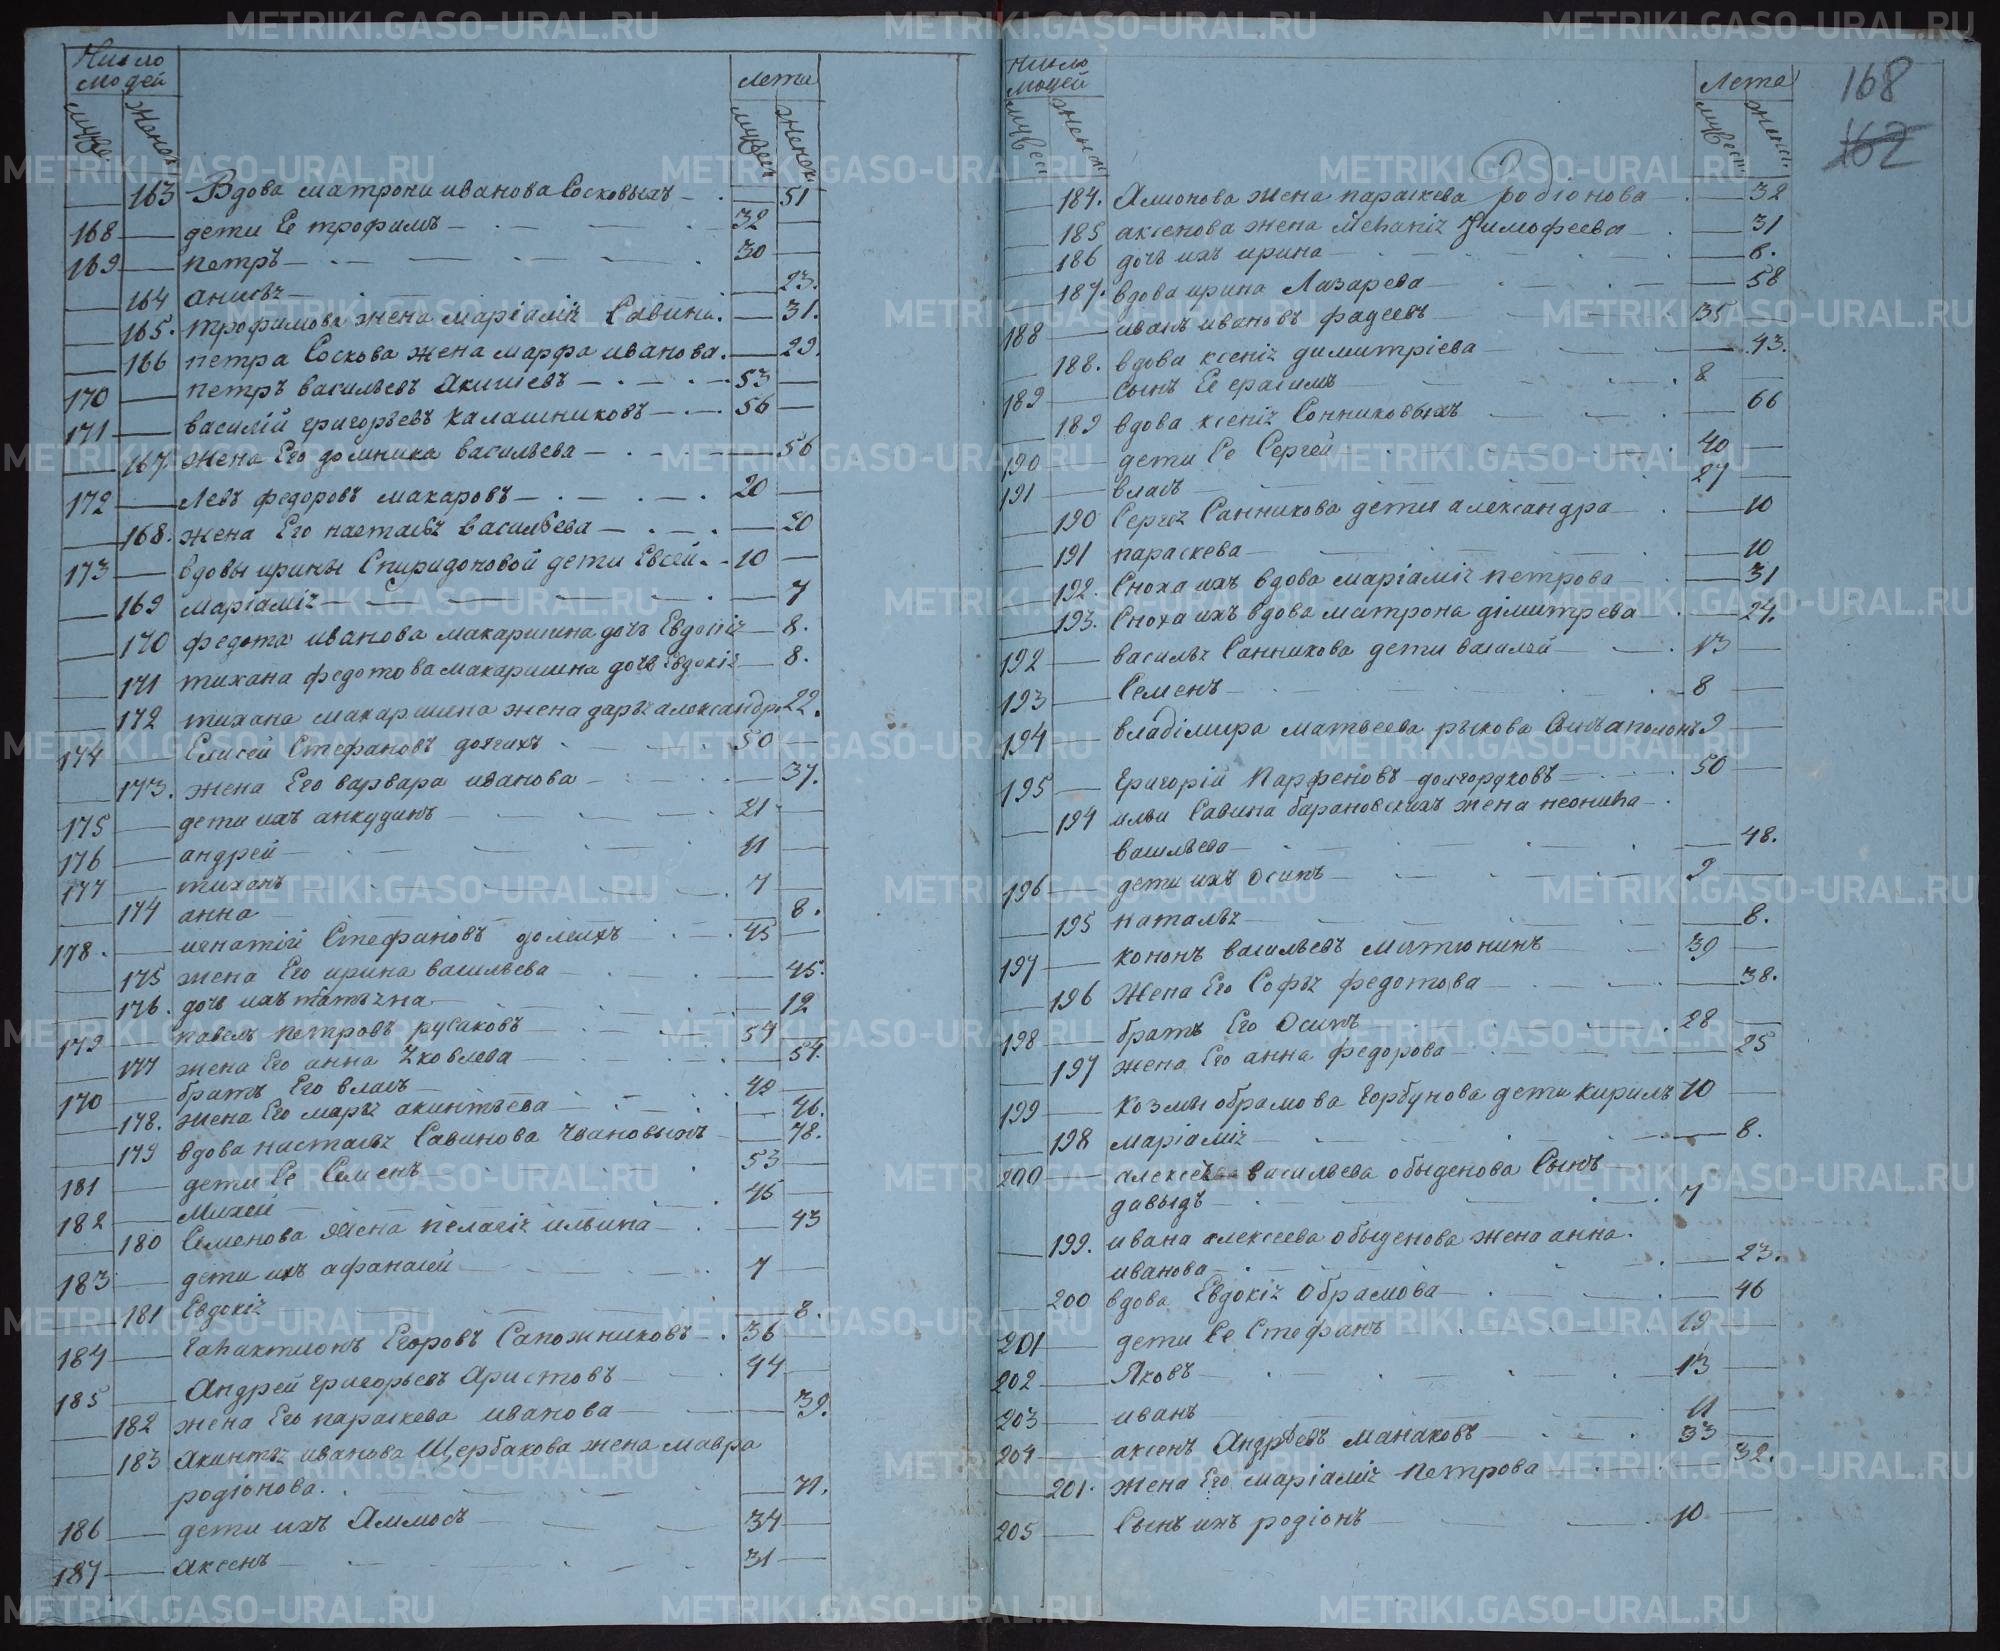 Число людей лета
мужес. женск. мужеск женск.
163 Вдова матрона иванова Сосковыхъ 51
168 дети Ее трофимъ 32
169 петръ 30
164 анисьz 23.
165. трофимова жена маріаміz Савина. 31.
166 петра Соскова жена марфа иванова. 29.
170 петръ васильевъ Акишевъ 53
171 василій григорьевъ калашниковъ 56
167. жена Его домника васильева 56
172 Левъ федоровъ макаровъ 20
168. жена Его настасьz васильева 20
173 вдовы ирины Спиридоновой дети Евсей 10
169 маріаміz 7
170 федота иванова макаришна дочь Евдокіz 8.
171 тихана федотова макаришна дочь Евдокіz 8.
172 тихана макаришна жена дарьz александр. 22.
174 Елисей Стефановъ долгихъ 50
173. жена Его варвара иванова 37.
175 дети ихъ анкудинъ 21
176 андрей 11
177 тиханъ 7
174 анна 8.
178. игнатій Стефановъ долгихъ 45
175 жена Его ирина васильева 45.
176. дочь ихъ татьzна 12
179 павелъ петровъ русаковъ 54
177 жена Его анна Zковлева 54.
170 братъ Его власъ 49
178. жена Его марьz акинтьева 46.
179 вдова настасьz Савинова 78.
181 дети Ее Семенъ 53
182 Михей 45
180 Семенова жена пелагіz ильина 43
183 дети ихъ афанасей 7
181 Евдокіz 8.
184 Галактионъ Егоровъ Сапожниковъ 36
185 Андрей григорьевъ Аристовъ 44
182 жена Его параскева иванова 39.
183 Акинтьz иванова Щербакова жена мавра
родіонова. 71.
186 дети ихъ Аммосъ 34
187 аксенъ 31
168
162
Число людей Лета
мужеск женск. мужеск. женск.
184. Амосова жена параскева родіонова 32
185 аксенова жена меланіz Тимофеева 31
186 дочь ихъ ирина 6.
187. вдова ирина Лазарева 58
188 иванъ ивановъ фадеевъ 35
188. вдова ксеніz димитріева 43.
189 Сынъ Ее ерасимъ 8
189 вдова ксеніz Сонниковыхъ 66
190 дети Ее Сергей 40
191 власъ 27
190 Сергеz Санникова дети александра 10
191 параскева 10
192. Сноха ихъ вдова маріаміz петрова 31
193. Сноха ихъ вдова матрона дімитрева 24.
192 васильz Санникова дети василей 13
193 Семенъ 8
194 владіміра матвеева рыкова Сынъ аполонъ 9
195 Григорій Парфеновъ долгоруковъ 50
194 ильи Савина барановскихъ жена неонила
васильева 48.
196 дети ихъ осипъ 9
195 натальz 8.
197 кононъ васильевъ митюнинъ 39
196 Жена Его Софьz федотова 38.
198 братъ Его Осипъ 28
197 жена Его анна федорова 25
199 козмы обрамова Горбунова дети кирилъ 10
198 маріаміz 8.
200 алексеz васильева обыденова Сынъ
давыдъ 7
199. ивана алексеева обыденова жена анна.
иванова 23.
200 вдова Евдокіz обрамова 46
201 дети Ее Стефанъ 19
202 Яковъ 13
203 иванъ 11
204 аксенъ Андреевъ манаковъ 33
201. жена Его маріаміz петрова 32.
205 Сынъ ихъ родіонъ 10